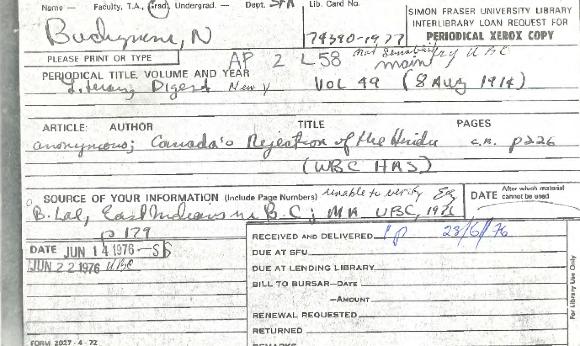 Name — Faculty, T.A., Grad, Undergrad. — Dept. SPA Lib. Card No.
SIMON FRASER UNIVERSITY LIBRARY
INTERLIBRARY LOAN REQUEST FOR
PERIODICAL XEROX COPY
Buchignani, N 74380-1977
PLEASE PRINT OR TYPE AP 2 L58 main try UBC
PERIODICAL TITLE, VOLUME AND YEAR
Literary Digest New Y VOL 49 (8 Aug 1914)
ARTICLE: AUTHOR TITLE PAGES
anonymous; Canada's Rejection of the Hindu ca. p226
(UBC HAS)
SOURCE OF YOUR INFORMATION (Include Page Numbers) unable to verify
DATE After which material cannot be used
B. Lal, East Indians in B.C; MA UBC, 1976
p 179
DATE JUN 14 1976 — SB
JUN 22 1976 UBC
RECEIVED AND DELIVERED 1p 23/6/76
DUE AT SFU
DUE AT LENDING LIBRARY
BILL TO BURSAR—DATE
—AMOUNT
RENEWAL REQUESTED
RETURNED
REMARKS
For Library Use Only
FORM 2027 - 4 - 72